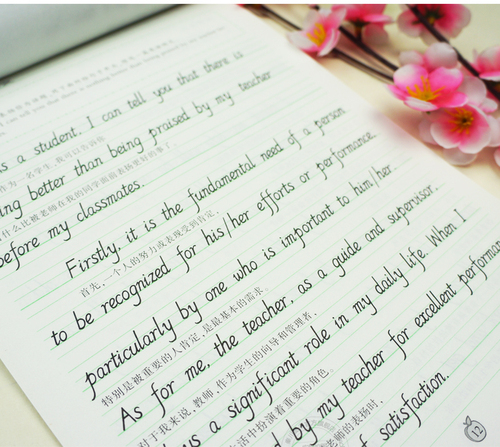 s a student, I can tell you that there is
作为一名学生,我可以告诉你
ing better than being praised by my teacher
什么比被老师在我的同学面前表扬更好的事了
before my classmates.
Firstly, it is the fundamental need of a person
首先,一个人的努力或表现受到肯定,
to be recognized for his/her efforts or performance.
particularly by one who is important to him/her.
特别是被重要的人肯定,是最基本的需求。
As for me, the teacher, as a guide and supervisor,
对于我来说,教师,作为学生的向导和管理者,
s a significant role in my daily life. When I
生活中扮演着重要的角色。
d by my teacher for excellent performa
老师的表扬时,
f satisfaction.
12